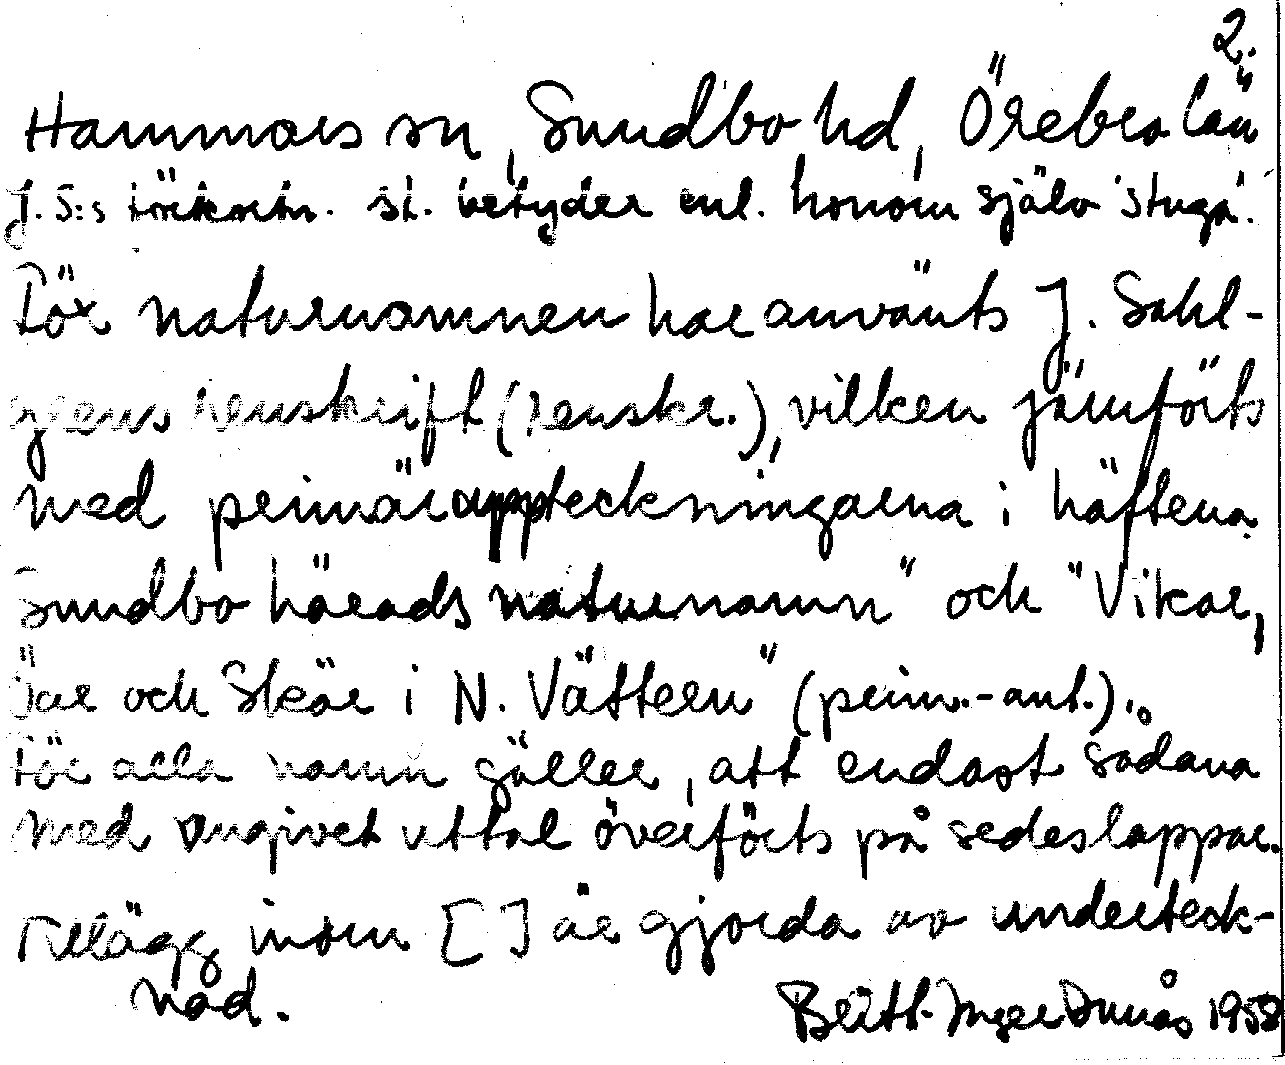 2.
Hammars sn, Sundbo hd, Örebro län
J.S:s förkortn. st. betyder enl. honom själv 'stuga'.
För naturnamnen har använts J. Sahl-
grens renskrift (renskr.), vilken jämförts
med primäruppteckningarna i häftena
Sundbo härads naturnamn" och "Vikar,
Öar och Skär i N. Vättern" (prim.-ant.).
För alla namn gäller, att endast sådana
med angivet uttal överförts på sedeslappar.
Tillägg inom [ ] är gjorda av underteck-
nad.
Britt-Inger 1958